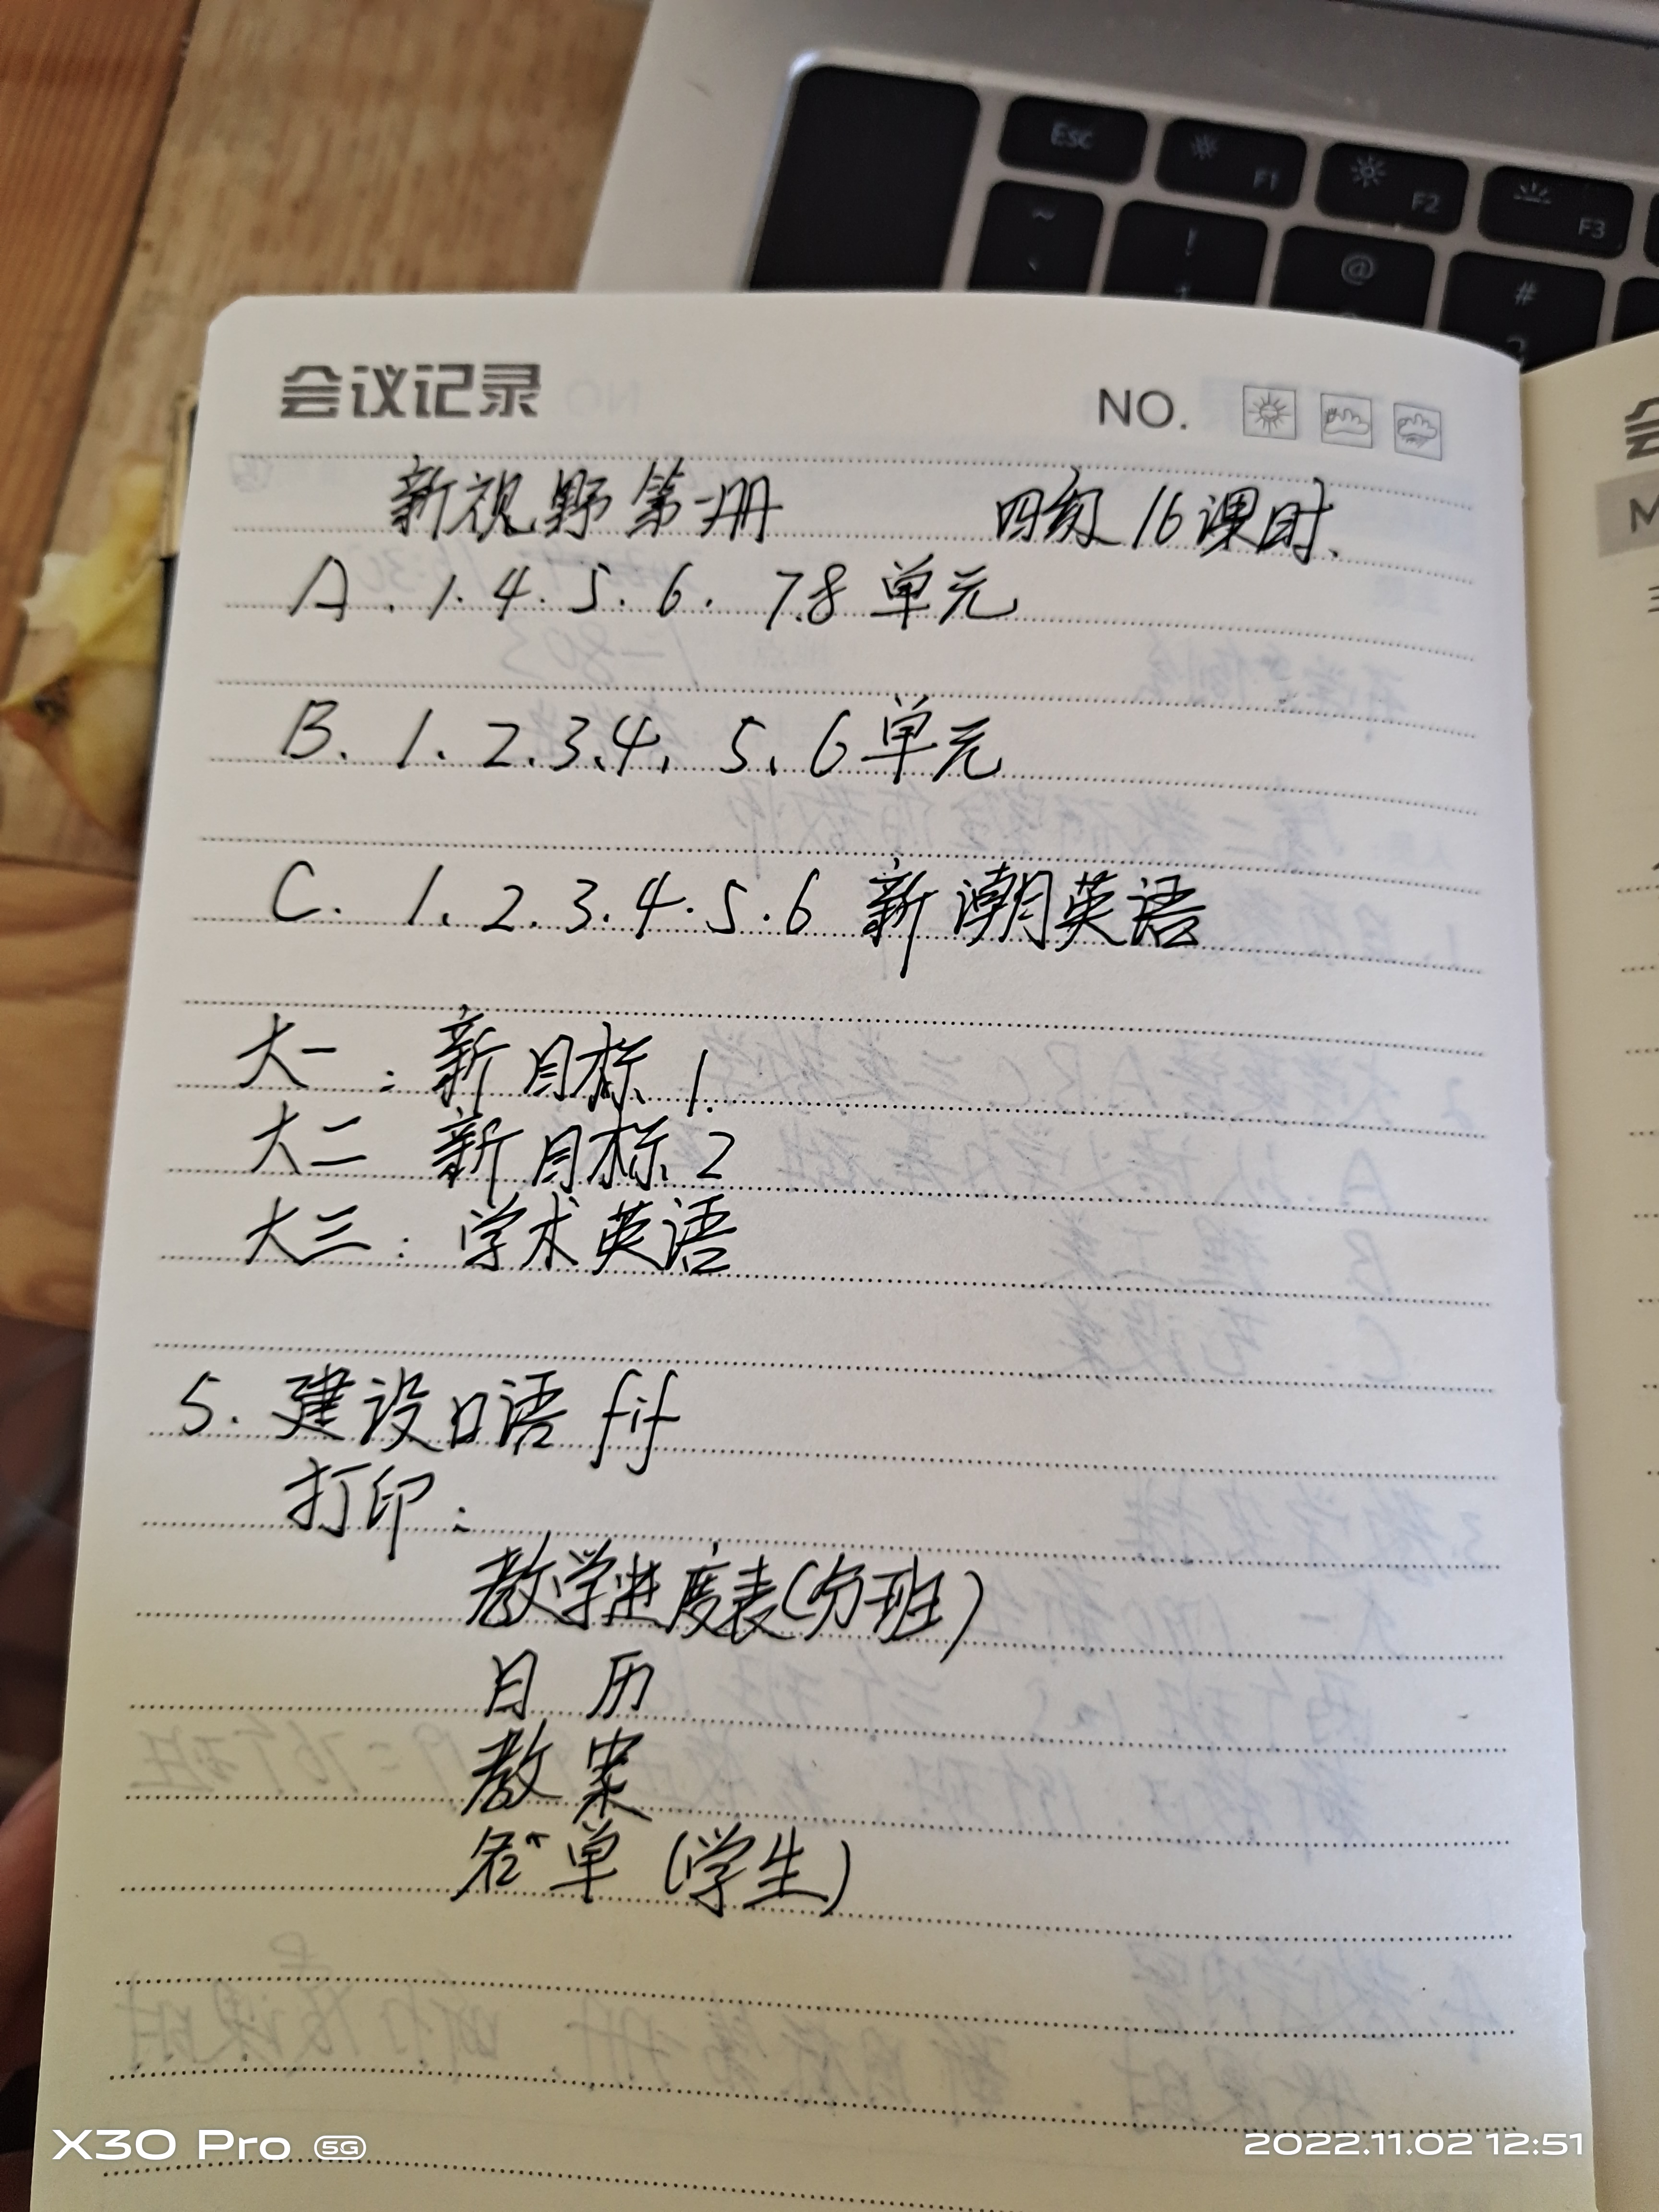 Esc
F1
F2
F3
~
!
@
#
会议记录 NO.
新视野第一册 四级16课时.
A. 1. 4. 5. 6. 7.8 单元
B. 1. 2.3.4. 5. 6单元
C. 1. 2. 3. 4. 5. 6 新潮英语
大一: 新目标 1.
大二 新目标 2
大三: 学术英语
5. 建设口语 fif
打印:
教学进度表(分班)
日历
教案
名单(学生)
X30 Pro 5G
2022.11.02 12:51